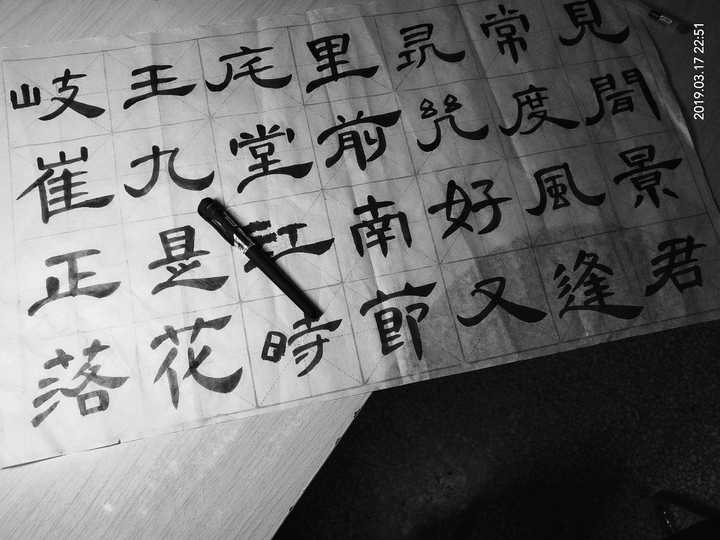 岐王宅里尋常見
崔九堂前幾度聞
正是江南好風景
落花時節又逢君
2019.03.17 22:51